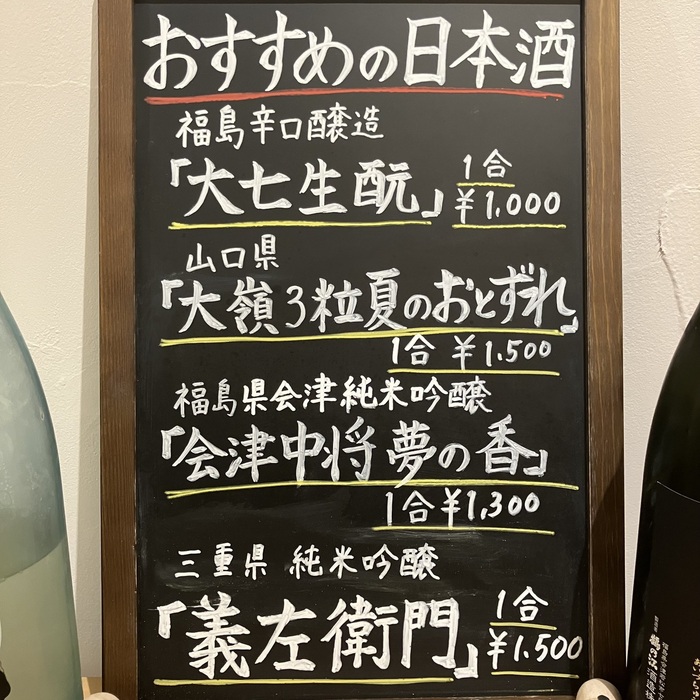 おすすめの日本酒
福島辛口醸造
「大七生酛」
1合
¥1.000
山口県
「大嶺3粒夏のおとずれ」
1合 ¥1.500
福島県会津純米吟醸
「会津中将夢の香」
1合¥1,300
三重県 純米吟醸
「義左衛門」
1合
¥1.500